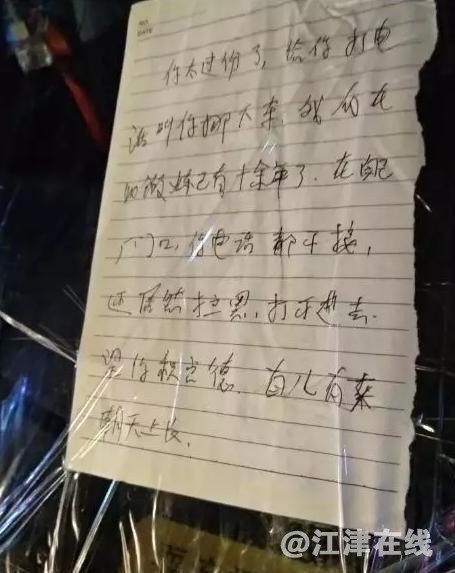 NO.
DATE
你太过份了，给你打电
话叫你挪下车，我们在
已有十余年了．在自己
门口，你电话都不接，
还居然拉黑，打不进去．
望你积点德．
朝天上长．
@江津在线